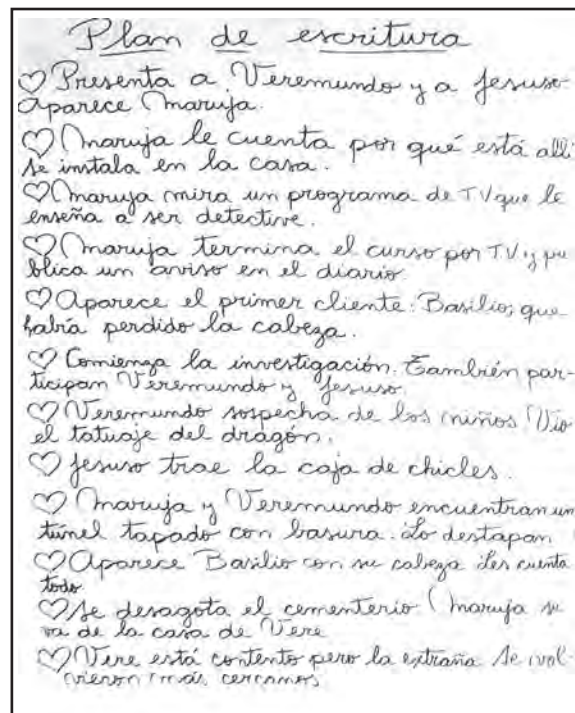 Plan de escritura
♡ Presenta a Veremundo y a Jesuso.
Aparece Maruja.
♡ Maruja le cuenta por qué está allí
se instala en la casa.
♡ Maruja mira un programa de TV que le
enseña a ser detective.
♡ Maruja termina el curso por T.V. y pu
blica un aviso en el diario.
♡ Aparece el primer cliente: Basilio; que
había perdido la cabeza.
♡ Comienza la investigación. También par-
ticipan Veremundo y Jesuso.
♡ Veremundo sospecha de los niños. Vio
el tatuaje del dragón.
♡ Jesuso trae la caja de chicles.
♡ Maruja y Veremundo encuentran un
túnel tapado con basura. Lo destapan
♡ Aparece Basilio con su cabeza. Les cuenta
todo.
♡ Se desagota el cementerio. Maruja se
va de la casa de Vere
♡ Vere está contento pero la extraña. Se vol-
vieron más cercanos.